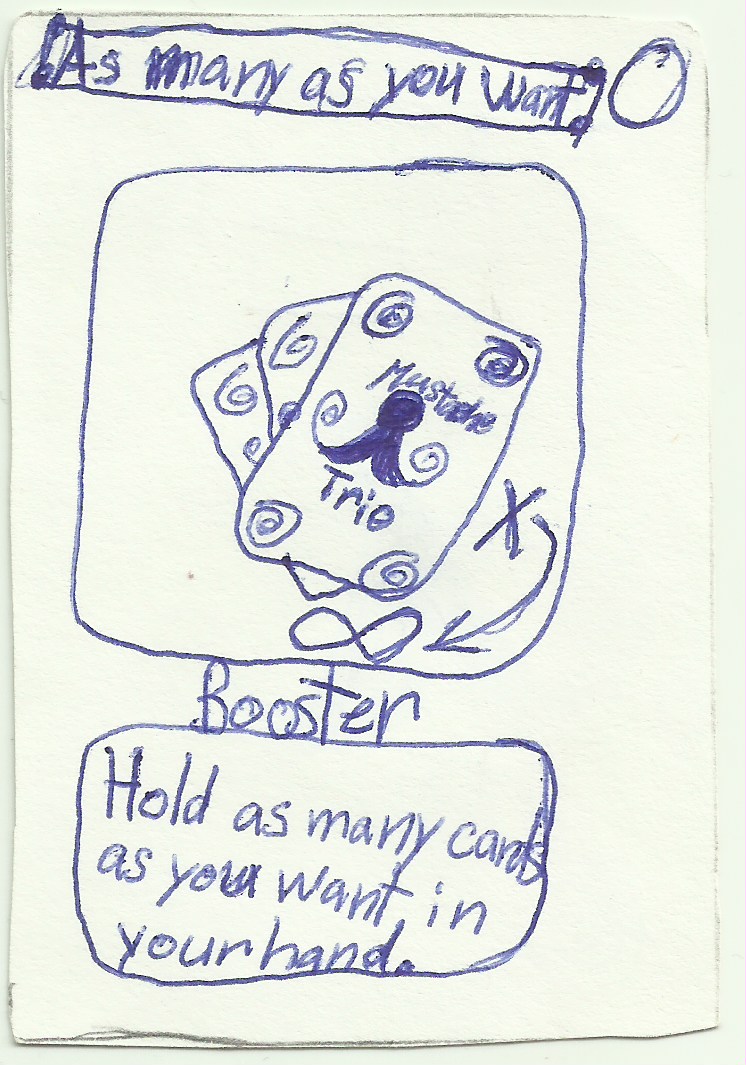 !As many as you want!
O
Mustache
Trio
X
∞
Booster
Hold as many cards
as you want in
your hand.